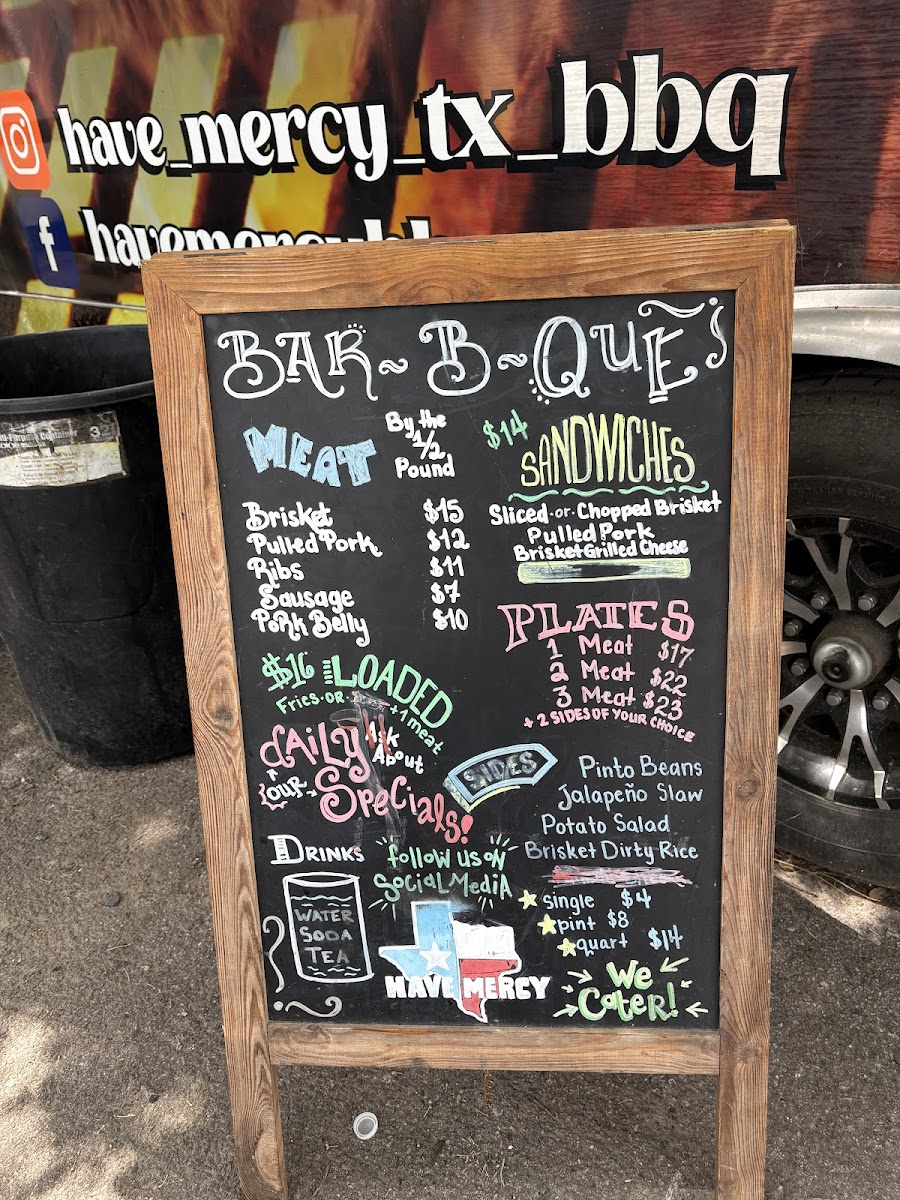 have_mercy_tx_bbq
f
BAR~B~QUE
MEAT
By the
1/2
Pound
Brisket $15
Pulled Pork $12
Ribs $11
Sausage $7
Pork Belly $10
$14
SANDWICHES
Sliced -or- Chopped Brisket
Pulled Pork
Brisket Grilled Cheese
PLATES
1 Meat $17
2 Meat $22
3 Meat $23
+ 2 SIDES OF YOUR CHOICE
$16 LOADED
Fries-OR-
+1 meat
Ask
About
OUR
dAiLy
Specials!
SIDES
Pinto Beans
Jalapeño Slaw
Potato Salad
Brisket Dirty Rice
single $4
pint $8
quart $14
DRINKS
WATER
SODA
TEA
follow us oN
SociaL MediA
HAVE MERCY
We
Cater!